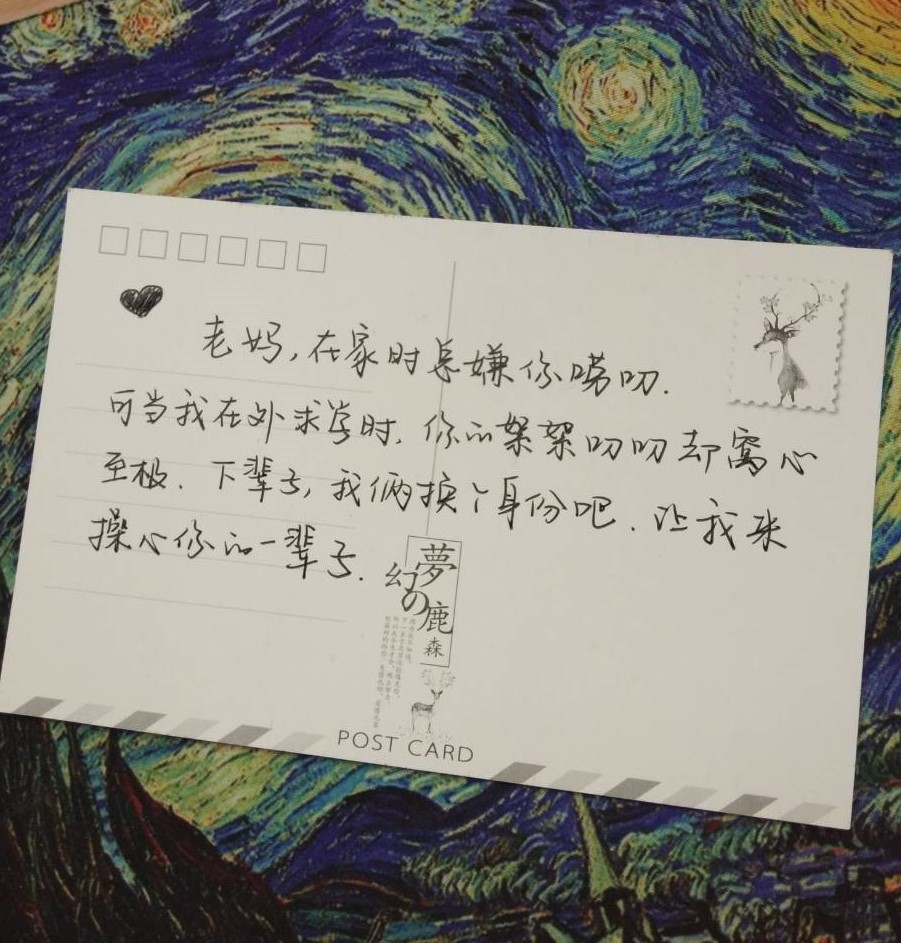 老妈，在家时总嫌你唠叨.
可当我在外求学时，你的絮絮叨叨却窝心
至极．下辈子，我俩换个身份吧．让我来
操心你的一辈子．
夢
幻の鹿
森
POST CARD